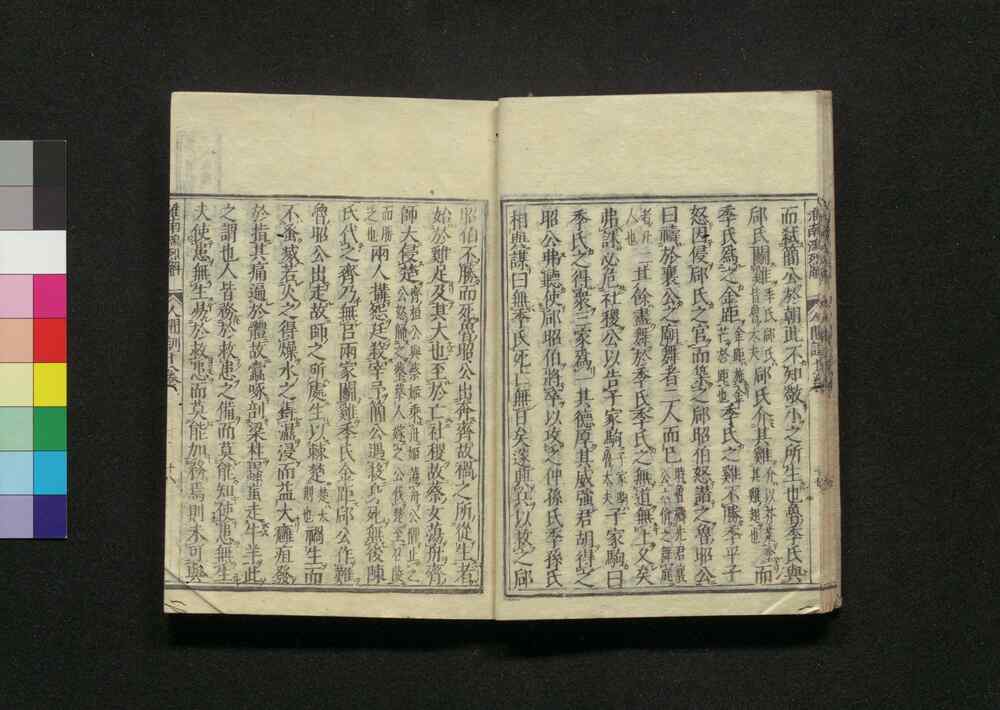 而弑簡公於朝此不知敬小之所生也魯季氏與
郈氏鬬雞季氏郈氏皆魯大夫郈氏介其雞介以芥菜塗其雞翅也而
季氏爲之金距金距施金芒於距也季氏之雞不勝季平子
怒因侵郈氏之宮而築之郈昭伯怒譖之魯昭公
曰禱於襄公之廟舞者二人而已時魯禱先君襄公六佾之舞庭
者凡二人也其餘盡舞於季氏季氏之無道無上久矣
弗誅必危社稷公以告子家駒子家駒魯大夫子家駒曰
季氏之得衆三家爲一其德厚其威強君胡得之
昭公弗聽使郈昭伯將卒以攻之仲孫氏季孫氏
相與謀曰無季氏死亡無日矣遂興兵以救之郈
昭伯不勝而死魯昭公出奔齊故禍之所從生者
始於雞足及其大也至於亡社稷故蔡女蕩舟齊
師大侵楚
兩人搆怨廷殺宰予簡公遇殺身死無後陳
氏代之齊乃無呂兩家鬬雞季氏金距郈公作難
魯昭公出走故師之所處生以棘楚楚大荊也禍生而
不蚤滅若火之得燥水之得濕浸而益大癰疽發
於指其痛遍於體故蠹啄剖梁柱蟁䖟走牛羊此
之謂也人皆務於救患之備而莫能知使患無生
夫使患無生易於救患而莫能加務焉則未可與